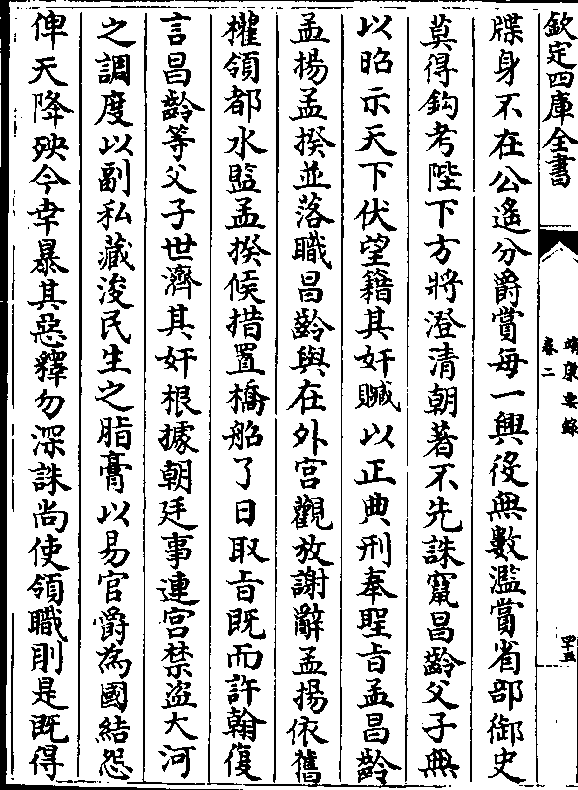 欽定四庫全書
靖康要錄
卷二
四十五
牒身不在公遙分爵賞每一興役無數濫賞省部御史
莫得鈎考陛下方將澄清朝著不先誅竄昌齡父子無
以昭示天下伏望籍其奸贓以正典刑奉聖㫖孟昌齡
孟楊孟揆並落職昌齡與在外宫觀放謝辭孟揚依舊
權領都水監孟揆候措置橋船了日取㫖既而許翰復
言昌齡等父子世濟其奸根據朝廷事連宫禁盗大河
之調度以副私藏浚民生之脂膏以易官爵為國結怨
俾天降殃今幸暴其惡釋勿深誅尚使領職則是既得